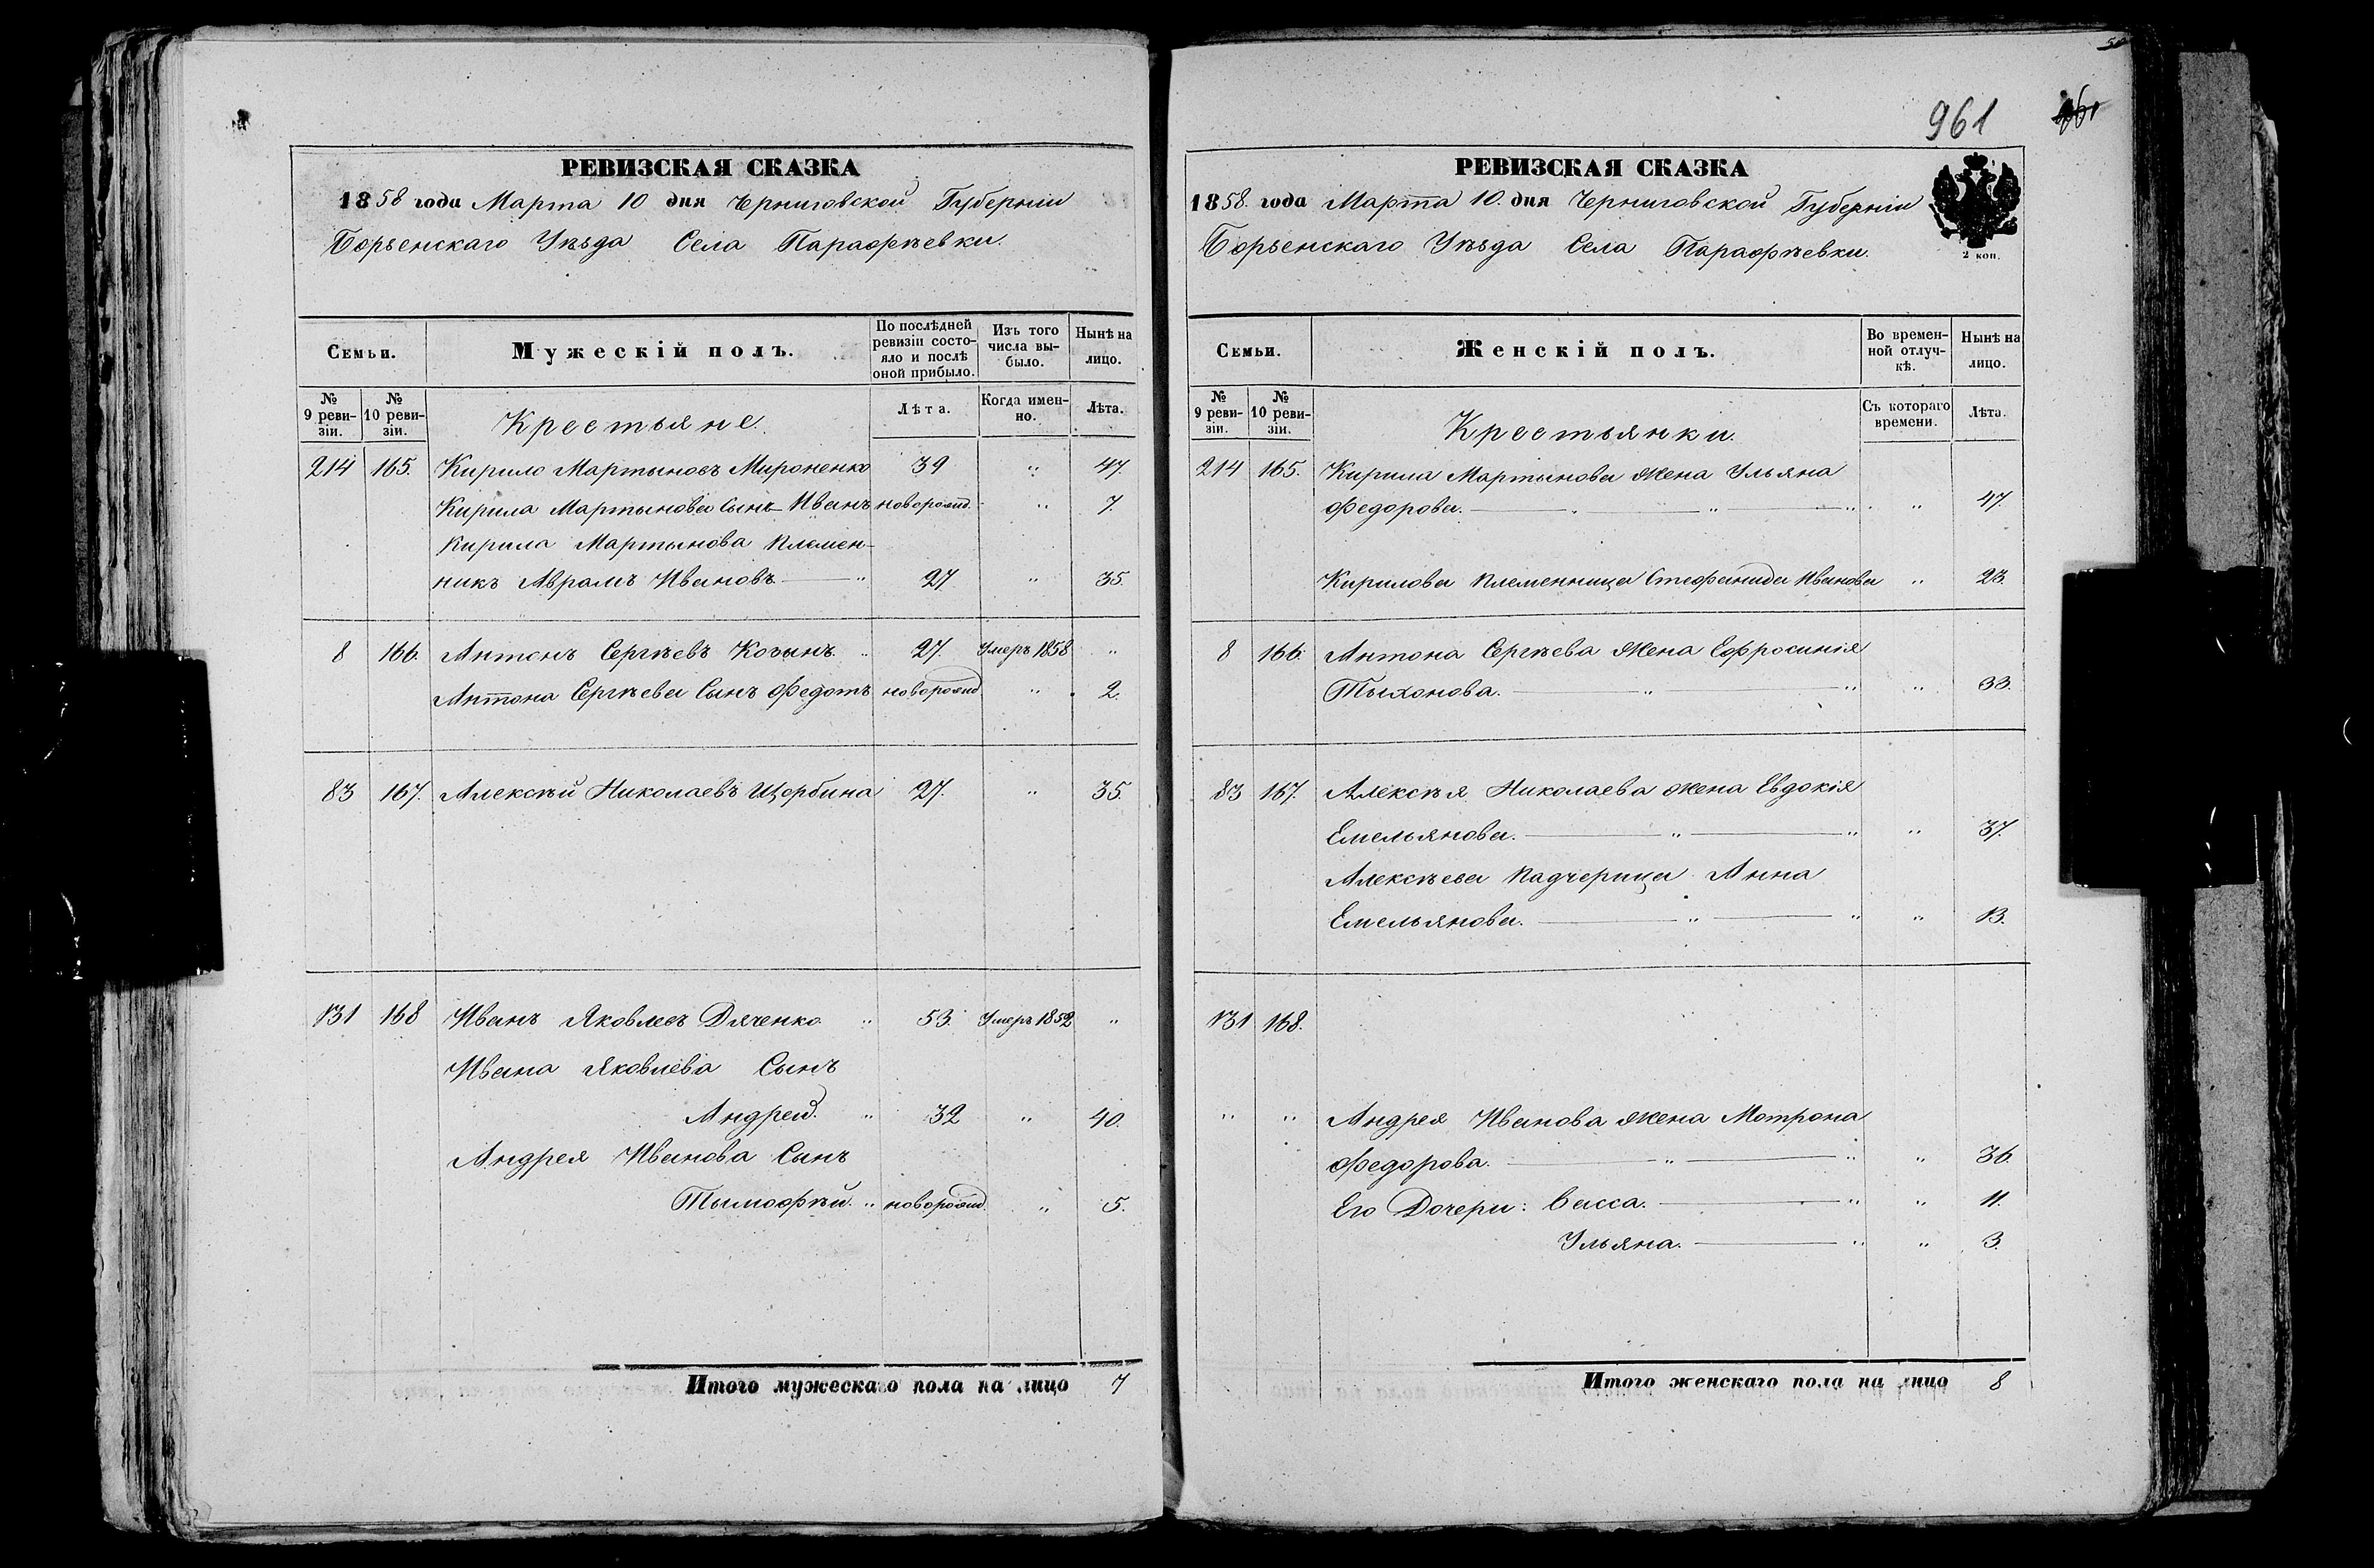 РЕВИЗСКАЯ СКАЗКА
1858 года Марта 10 дня Черниговской Губерніи
Борзенскаго Уѣзда Села Парафѣевки.
Семьи.
Мужескій полъ.
По послѣдней ревизіи состояло и послѣ оной прибыло.
Изъ того числа выбыло.
Нынѣ на лицо.
№ 9 ревизіи.
№ 10 ревизіи.
Крестьяне.
Лѣта.
Когда именно.
Лѣта.
214 165. Кирило Мартыновъ Мироненко 39 " 47.
Кирила Мартынова Сынъ Иванъ новорожд. " 7.
Кирила Мартынова племен-
никъ Аврамъ Ивановъ — " 27 " 35.
8 166. Антонъ Сергѣевъ " 27 Умеръ 1858 "
Антона Сергѣева Сынъ Федотъ новорожд. " 2.
83 167. Алексѣй Николаевъ Щербина 27. " 35.
131 168 Иванъ Яковлевъ Дяченко " 53. Умеръ 1852 "
Ивана Яковлева Сынъ
Андрей. " 32 " 40.
Андрея Иванова Сынъ
Тымофѣй. " новорожд. " 5.
Итого мужескаго пола на лицо 7
961
РЕВИЗСКАЯ СКАЗКА
1858. года Марта 10. дня Черниговской Губерніи
Борзенскаго Уѣзда Села Парафѣевки.
2 коп.
Семьи.
Женскій полъ.
Во временной отлучкѣ.
Нынѣ на лицо.
№ 9 ревизіи.
№ 10 ревизіи.
Крестьянки.
Съ котораго времени.
Лѣта.
214 165. Кирила Мартынова жена Ульяна
Федорова. — " — " " 47.
Кирилова племенница Стефанида Иванова " 23.
8 166. Антона Сергѣева жена Ефросинія
Тыхонова. — " — " " 33.
83 167. Алексѣя Николаева жена Евдокія
Емельянова. — " — " " 37.
Алексѣева падчерица Анна
Емельянова. — " — " " 13.
131 168.
" " Андрея Иванова жена Мотрона
Федорова. — " — " " 36.
Его Дочери: Васса. — " " 11.
Ульяна. — " " 3.
Итого женскаго пола на лицо 8